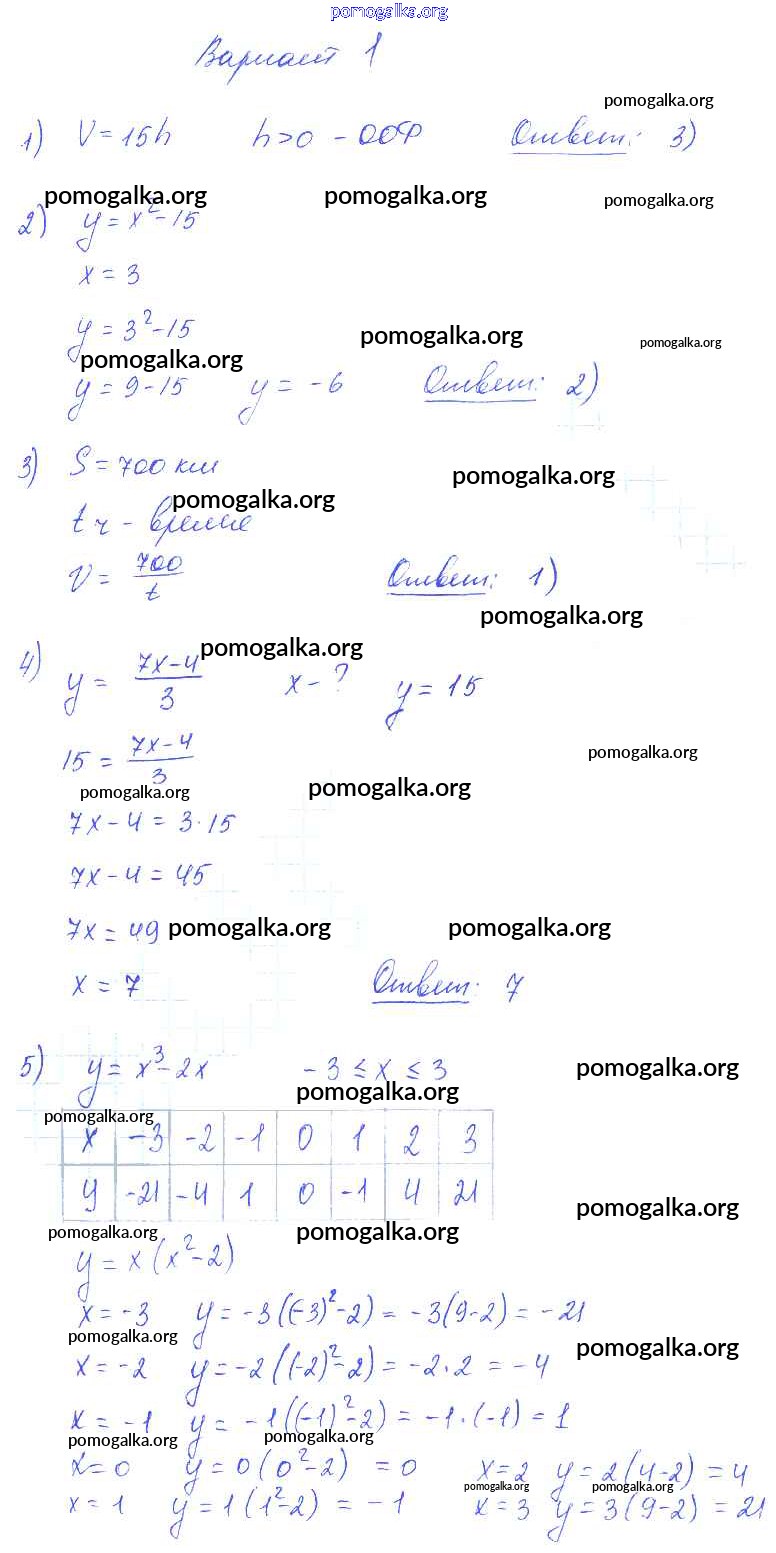 pomogalka.org
Вариант 1
pomogalka.org
1) V = 15h h>0 - ООФ Ответ: 3)
pomogalka.org pomogalka.org pomogalka.org
2) y = x² - 15
x = 3
y = 3² - 15
pomogalka.org pomogalka.org
pomogalka.org
y = 9 - 15 y = -6 Ответ: 2)
3) S = 700 км
pomogalka.org
pomogalka.org
t ч - время
V = 700/t Ответ: 1)
pomogalka.org
pomogalka.org
4) y = (7x-4)/3 x - ? y = 15
15 = (7x-4)/3
pomogalka.org
pomogalka.org pomogalka.org
7x - 4 = 3 · 15
7x - 4 = 45
7x = 49
pomogalka.org pomogalka.org
x = 7 Ответ: 7
5) y = x³ - 2x -3 ≤ x ≤ 3
pomogalka.org
pomogalka.org
pomogalka.org
x -3 -2 -1 0 1 2 3
y -21 -4 1 0 -1 4 21
pomogalka.org
pomogalka.org pomogalka.org
y = x(x² - 2)
x = -3 y = -3((-3)² - 2) = -3(9-2) = -21
pomogalka.org
pomogalka.org
x = -2 y = -2((-2)² - 2) = -2·2 = -4
x = -1 y = -1((-1)² - 2) = -1·(-1) = 1
pomogalka.org pomogalka.org
x = 0 y = 0(0² - 2) = 0 x = 2 y = 2(4-2) = 4
pomogalka.org pomogalka.org
x = 1 y = 1(1² - 2) = -1 x = 3 y = 3(9-2) = 21